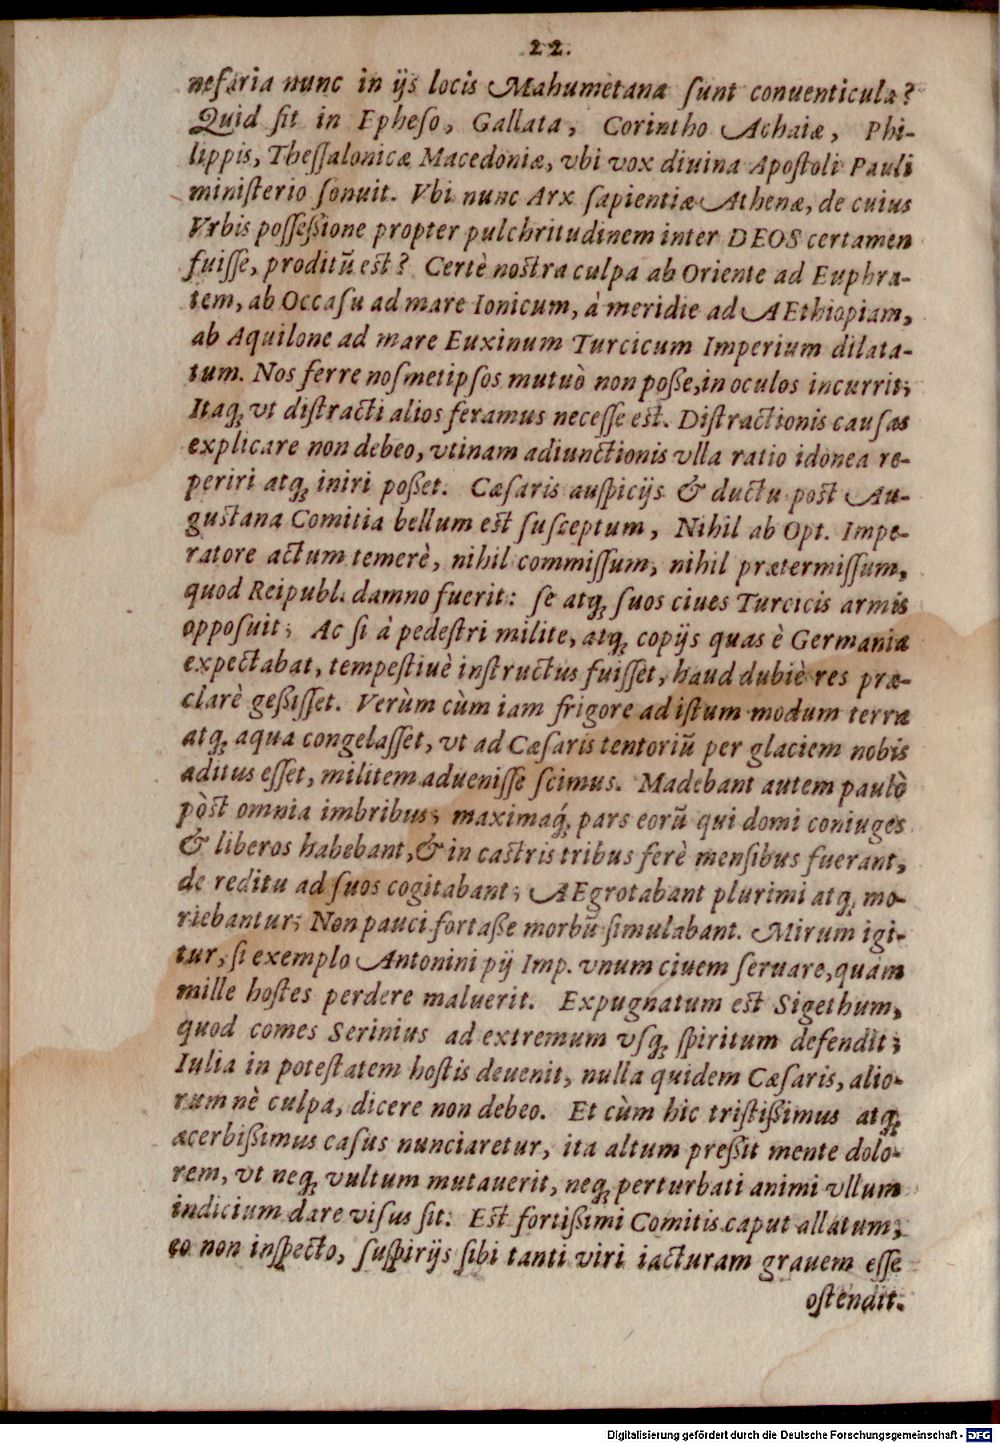 22.
nefaria nunc in ijs locis Mahumetana ſunt conuenticula?
Quid ſit in Epheſo, Gallata, Corintho Achaiæ, Phi-
lippis, Theſſalonicæ Macedoniæ, vbi vox diuina Apoſtoli Pauli
miniſterio ſonuit. Vbi nunc Arx ſapientiæ Athenæ, de cuius
Vrbis poſſeßione propter pulchritudinem inter DEOS certamen
fuiſſe, proditũ est? Certè nostra culpa ab Oriente ad Euphra-
tem, ab Occaſu ad mare Ionicum, à meridie ad AEthiopiam,
ab Aquilone ad mare Euxinum Turcicum Imperium dilata-
tum. Nos ferre noſmetipſos mutuò non poße, in oculos incurrit;
Itaq; vt diſtracti alios feramus neceſſe est. Diſtractionis cauſas
explicare non debeo, vtinam adiunctionis vlla ratio idonea re-
periri atq; iniri poßet. Cæſaris auſpicijs & ductu post Au-
gustana Comitia bellum est ſuſceptum, Nihil ab Opt. Impe-
ratore actum temerè, nihil commiſſum, nihil prætermiſſum,
quod Reipubl. damno fuerit: ſe atq; ſuos ciues Turcicis armis
oppoſuit; Ac ſi à pedeſtri milite, atq; copijs quas è Germania
expectabat, tempeſtiuè inſtructus fuiſſet, haud dubiè res præ-
clarè geßiſſet. Verùm cùm iam frigore ad iſtum modum terra
atq; aqua congelaſſet, vt ad Cæſaris tentoriũ per glaciem nobis
aditus eſſet, militem adueniſſe ſcimus. Madebant autem paulò
pòst omnia imbribus; maximaq́; pars eorũ qui domi coniuges
& liberos habebant, & in castris tribus ferè menſibus fuerant,
de reditu ad ſuos cogitabant; AEgrotabant plurimi atq; mo-
riebantur; Non pauci fortaße morbũ ſimulabant. Mirum igi-
tur, ſi exemplo Antonini pij Imp. vnum ciuem ſeruare, quàm
mille hoſtes perdere maluerit. Expugnatum est Sigethum,
quod comes Serinius ad extremum vſq; ſpiritum defendit;
Iulia in poteſtatem hoſtis deuenit, nulla quidem Cæſaris, alio-
rumnè culpa, dicere non debeo. Et cùm hic triſtißimus atq;
acerbißimus caſus nunciaretur, ita altum preßit mente dolo-
rem, vt neq; vultum mutauerit, neq; perturbati animi vllum
indicium dare viſus ſit: Est fortißimi Comitis caput allatum;
eo non inſpecto, ſuſpirijs ſibi tanti viri iacturam grauem eſſe
oſtendit.
Digitalisierung gefördert durch die Deutsche Forschungsgemeinschaft - DFG